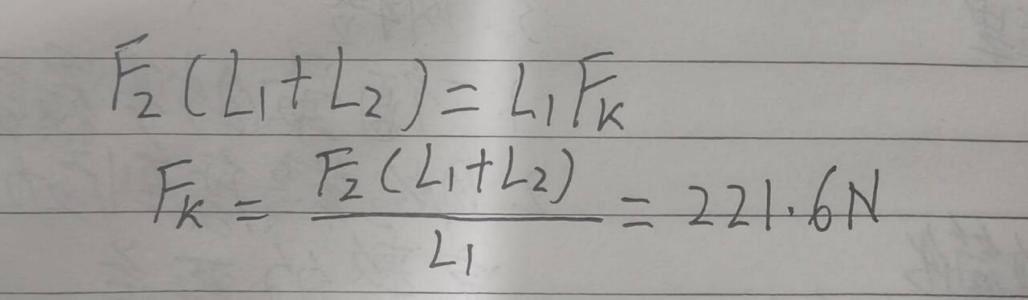 F₂(L₁+L₂)=L₁Fₖ
Fₖ = F₂(L₁+L₂)/L₁ = 221.6N